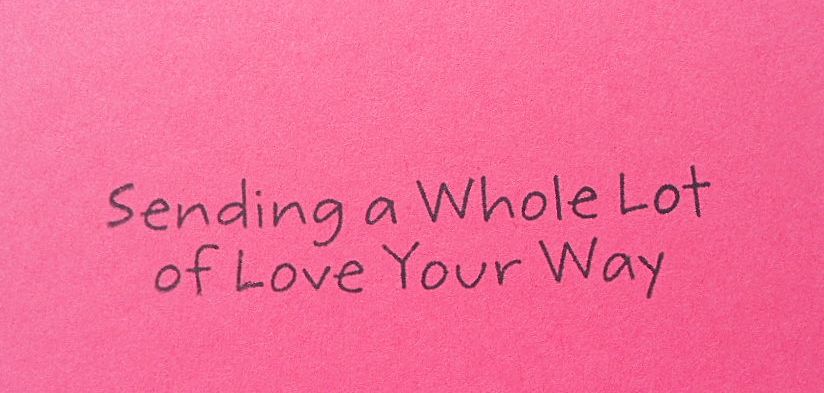 Sending a Whole Lot
of Love Your Way